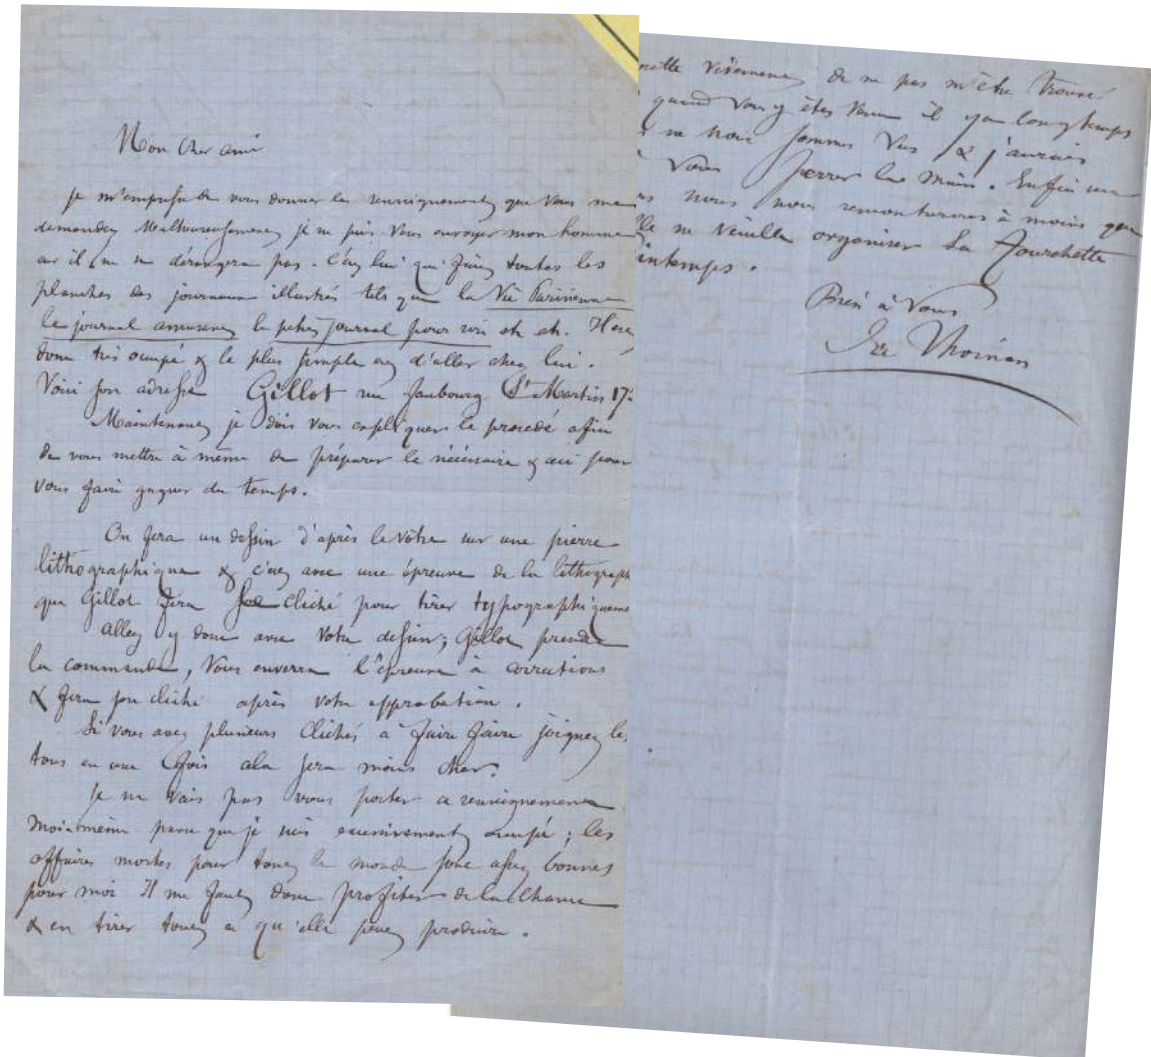 Mon cher ami
Je m'empresse de vous donner les renseignements que vous me
demandez Malheureusement je ne puis vous envoyer mon homme
car il ne se dérangera pas. C'est lui qui fait toutes les
planches des journaux illustrés tels que la Vie Parisienne
le journal amusant le petit journal pour rire etc etc. Il est
donc très occupé & le plus simple est d'aller chez lui.
Voici son adresse Gillot rue faubourg St Martin
Maintenant je dois vous expliquer le procédé afin
de vous mettre à même de préparer le nécessaire & aussi pour
vous faire gagner du temps.
On fera un dessin d'après le vôtre sur une pierre
lithographique & c'est avec une épreuve de la lithograph
que Gillot fera cliché pour tirer typographiquem
Allez y donc avec votre dessin; Gillot prendra
la commande, vous enverra l'épreuve à corrections
& fera son cliché après votre approbation.
Si vous avez plusieurs clichés à faire faire joignez les
tous en une fois cela sera moins cher.
Je ne vais pas vous porter ce renseignement
moi-même parce que je suis excessivement occupé; les
affaires mortes pour tout le monde sont assez bonnes
pour moi Il me faut donc profiter de la chance
& en tirer tout ce qu'elle peut produire.
vivement de ne pas m'être trouvé
quand vous y êtes venu il y a longtemps
ne nous sommes vus & j'aurais
vous serrer la main. Enfin un
nous nous rencontrerons à moins que
ne veuille organiser La fourchette
intemps.
Bien à vous
Thoinan